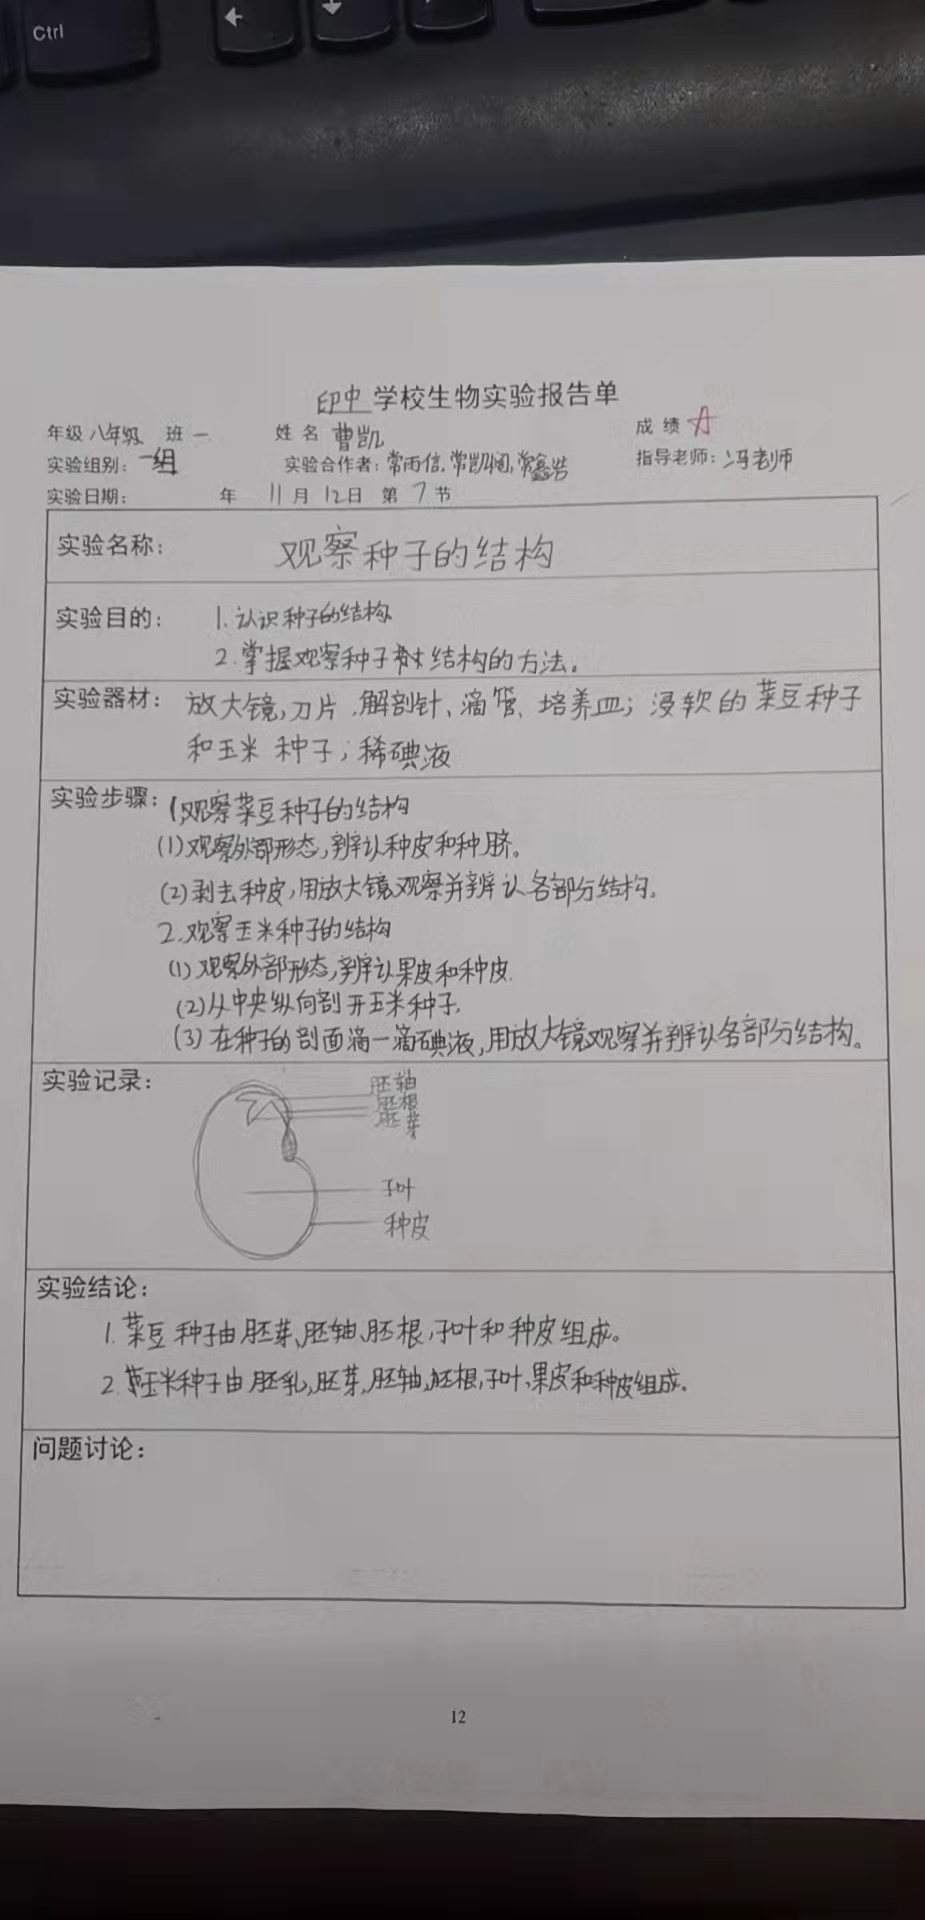 Ctrl
印中学校生物实验报告单
年级 八年级 班 一 姓名 曹凯 成绩 A
实验组别：一组 实验合作者：常雨信、常凯、常鑫浩 指导老师：冯老师
实验日期： 年 11月 12日 第 7 节
实验名称： 观察种子的结构
实验目的： 1.认识种子的结构
2.掌握观察种子结构的方法。
实验器材： 放大镜,刀片、解剖针、滴管、培养皿；浸软的菜豆种子
和玉米种子；稀碘液
实验步骤： 1观察菜豆种子的结构
(1)观察外部形态,辨认种皮和种脐。
(2)剥去种皮,用放大镜观察并辨认各部分结构。
2.观察玉米种子的结构
(1)观察外部形态,辨认果皮和种皮.
(2)从中央纵向剖开玉米种子.
(3)在种子的剖面滴一滴碘液,用放大镜观察并辨认各部分结构。
实验记录：
胚轴
胚根
胚芽
子叶
种皮
实验结论：
1.菜豆种子由胚芽、胚轴、胚根,子叶和种皮组成。
2.玉米种子由胚乳,胚芽,胚轴,胚根,子叶、果皮和种皮组成.
问题讨论：
12